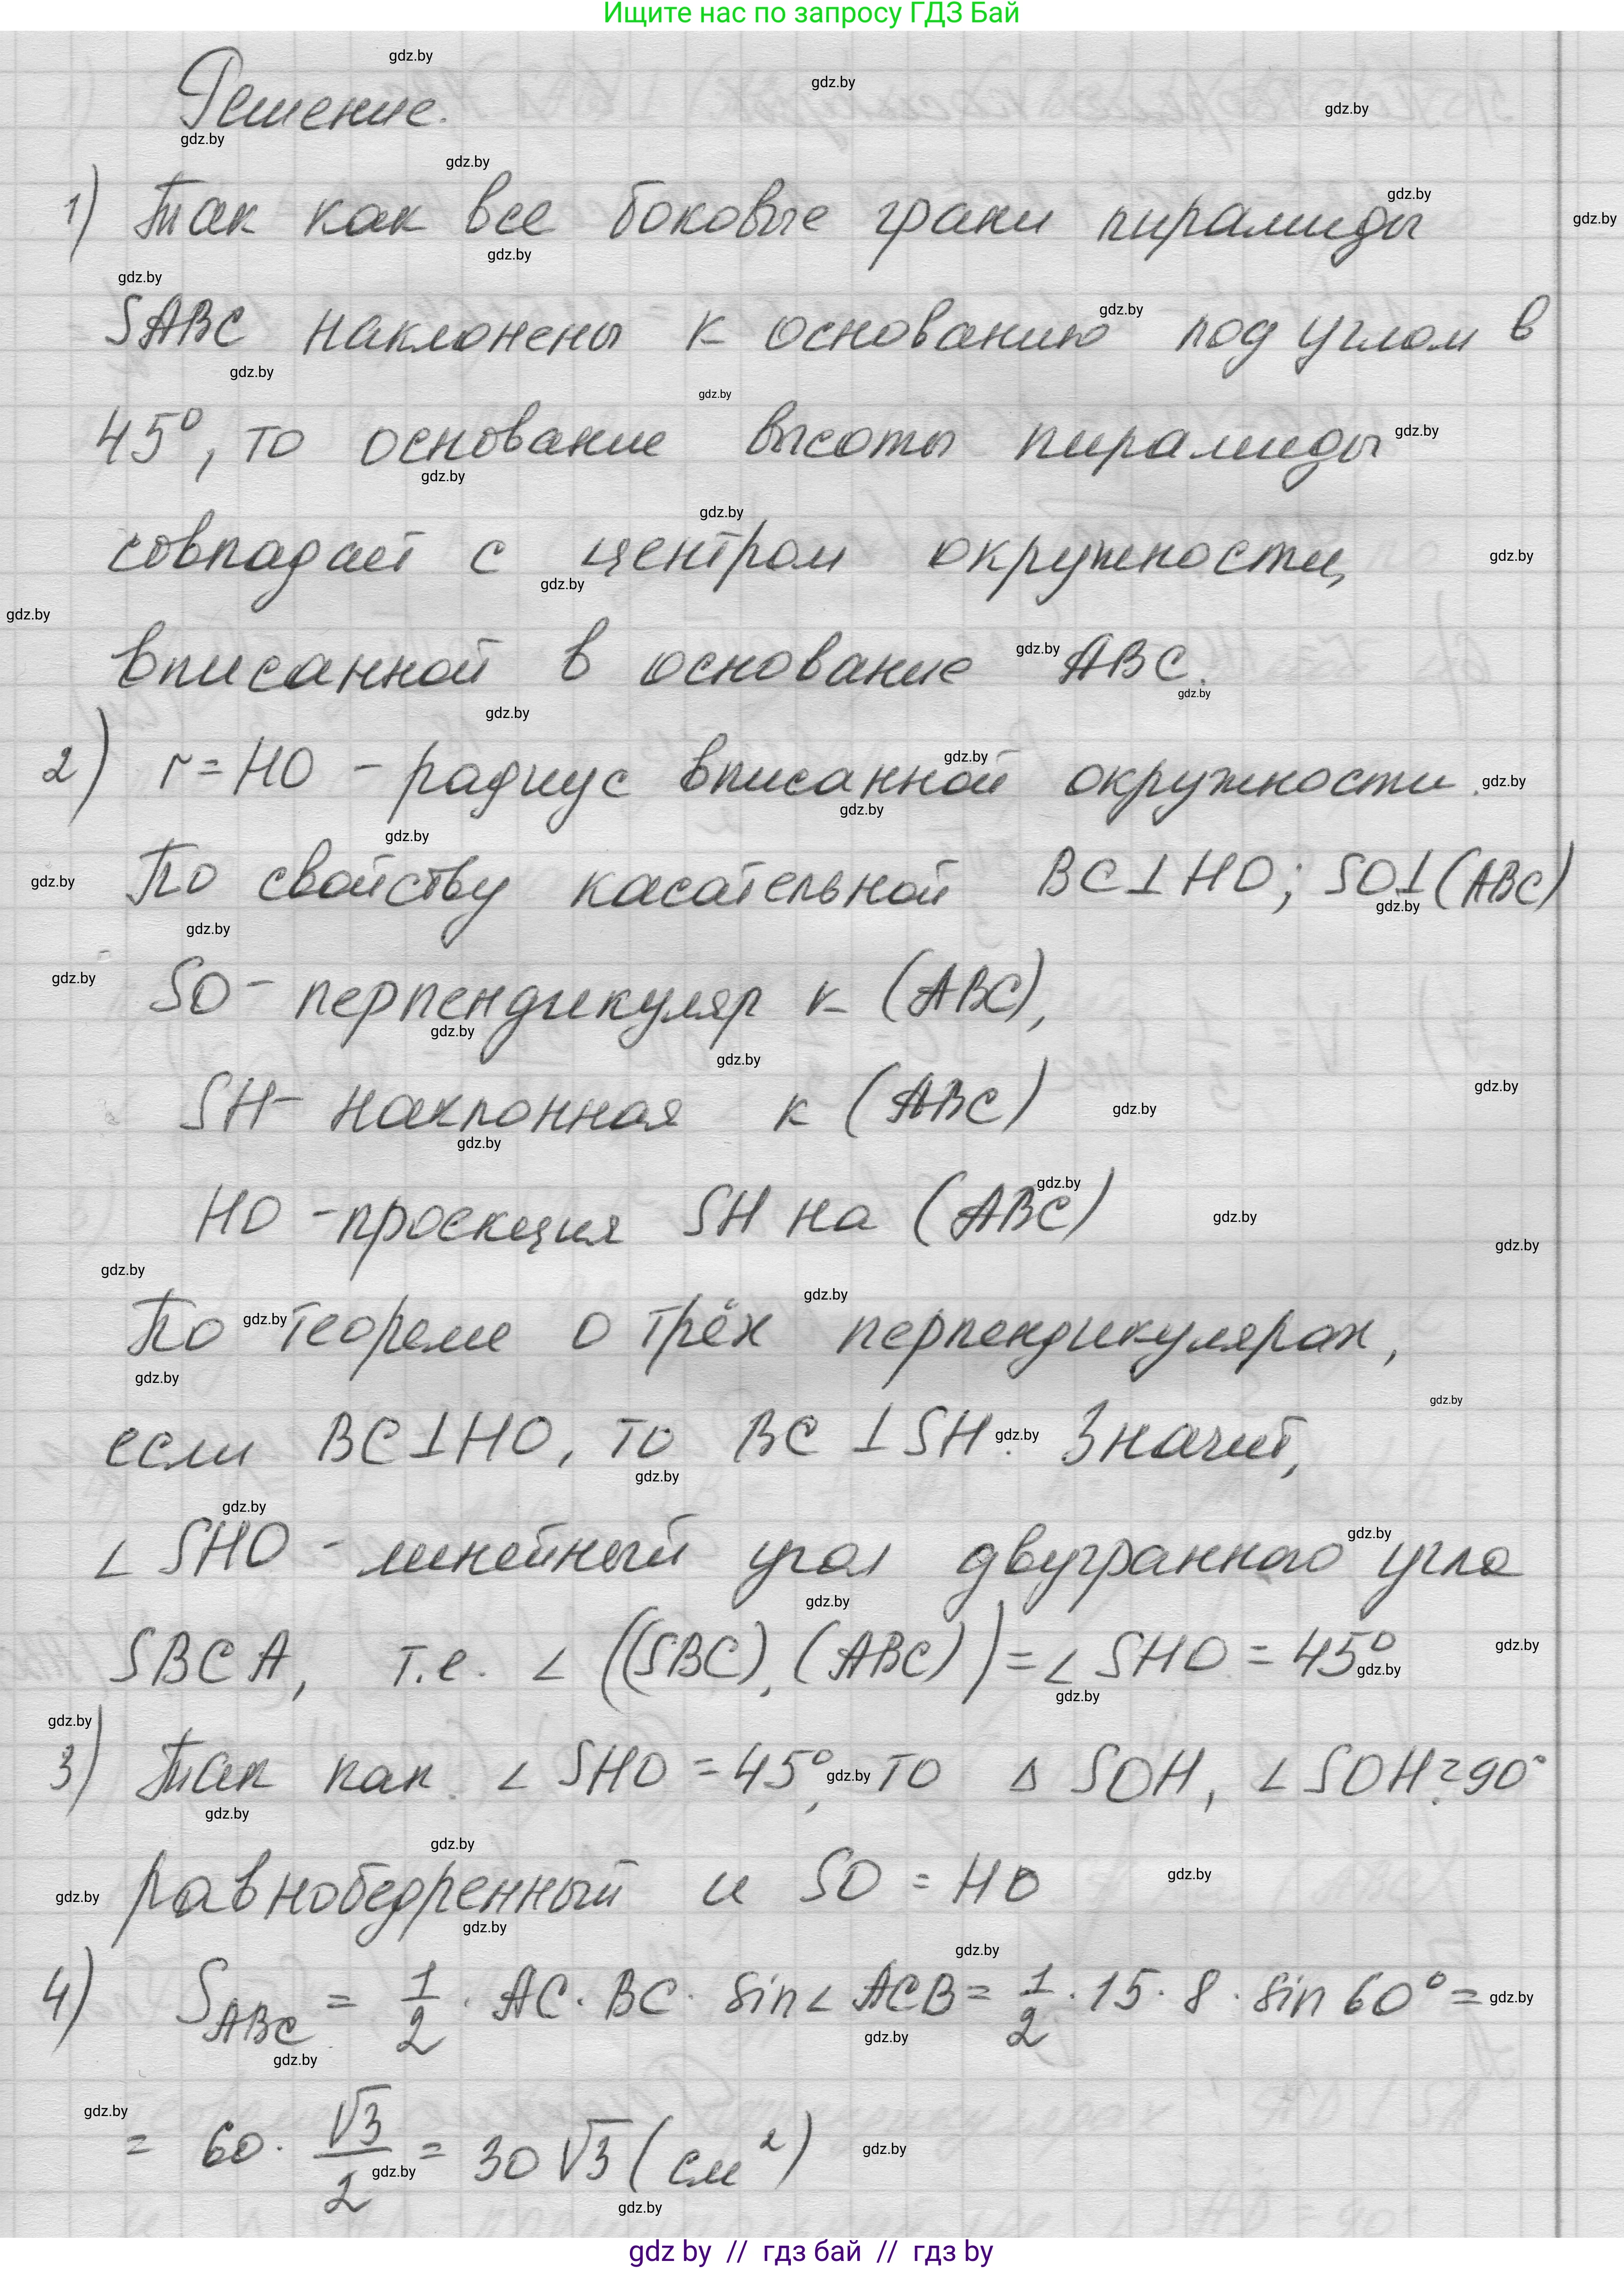 Ищите нас по запросу ГДЗ Бай
Решение.
1) Так как все боковые грани пирамиды
SABC наклонены к основанию под углом в
45°, то основание высоты пирамиды
совпадает с центром окружности,
вписанной в основание ABC.
2) r = HO - радиус вписанной окружности.
По свойству касательной BC⊥HO; SO⊥(ABC)
SO - перпендикуляр к (ABC),
SH - наклонная к (ABC)
HO - проекция SH на (ABC)
По теореме о трёх перпендикулярах,
если BC⊥HO, то BC⊥SH. Значит,
∠SHO - линейный угол двугранного угла
SBCA, т.е. ∠((SBC), (ABC)) = ∠SHO = 45°
3) Так как ∠SHO = 45°, то △SOH, ∠SOH = 90°
равнобедренный и SO = HO
4) S_ABC = 1/2 · AC · BC · sin∠ACB = 1/2 · 15 · 8 · sin 60° =
= 60 · √3/2 = 30√3 (см²)
gdz by // гдз бай // гдз by